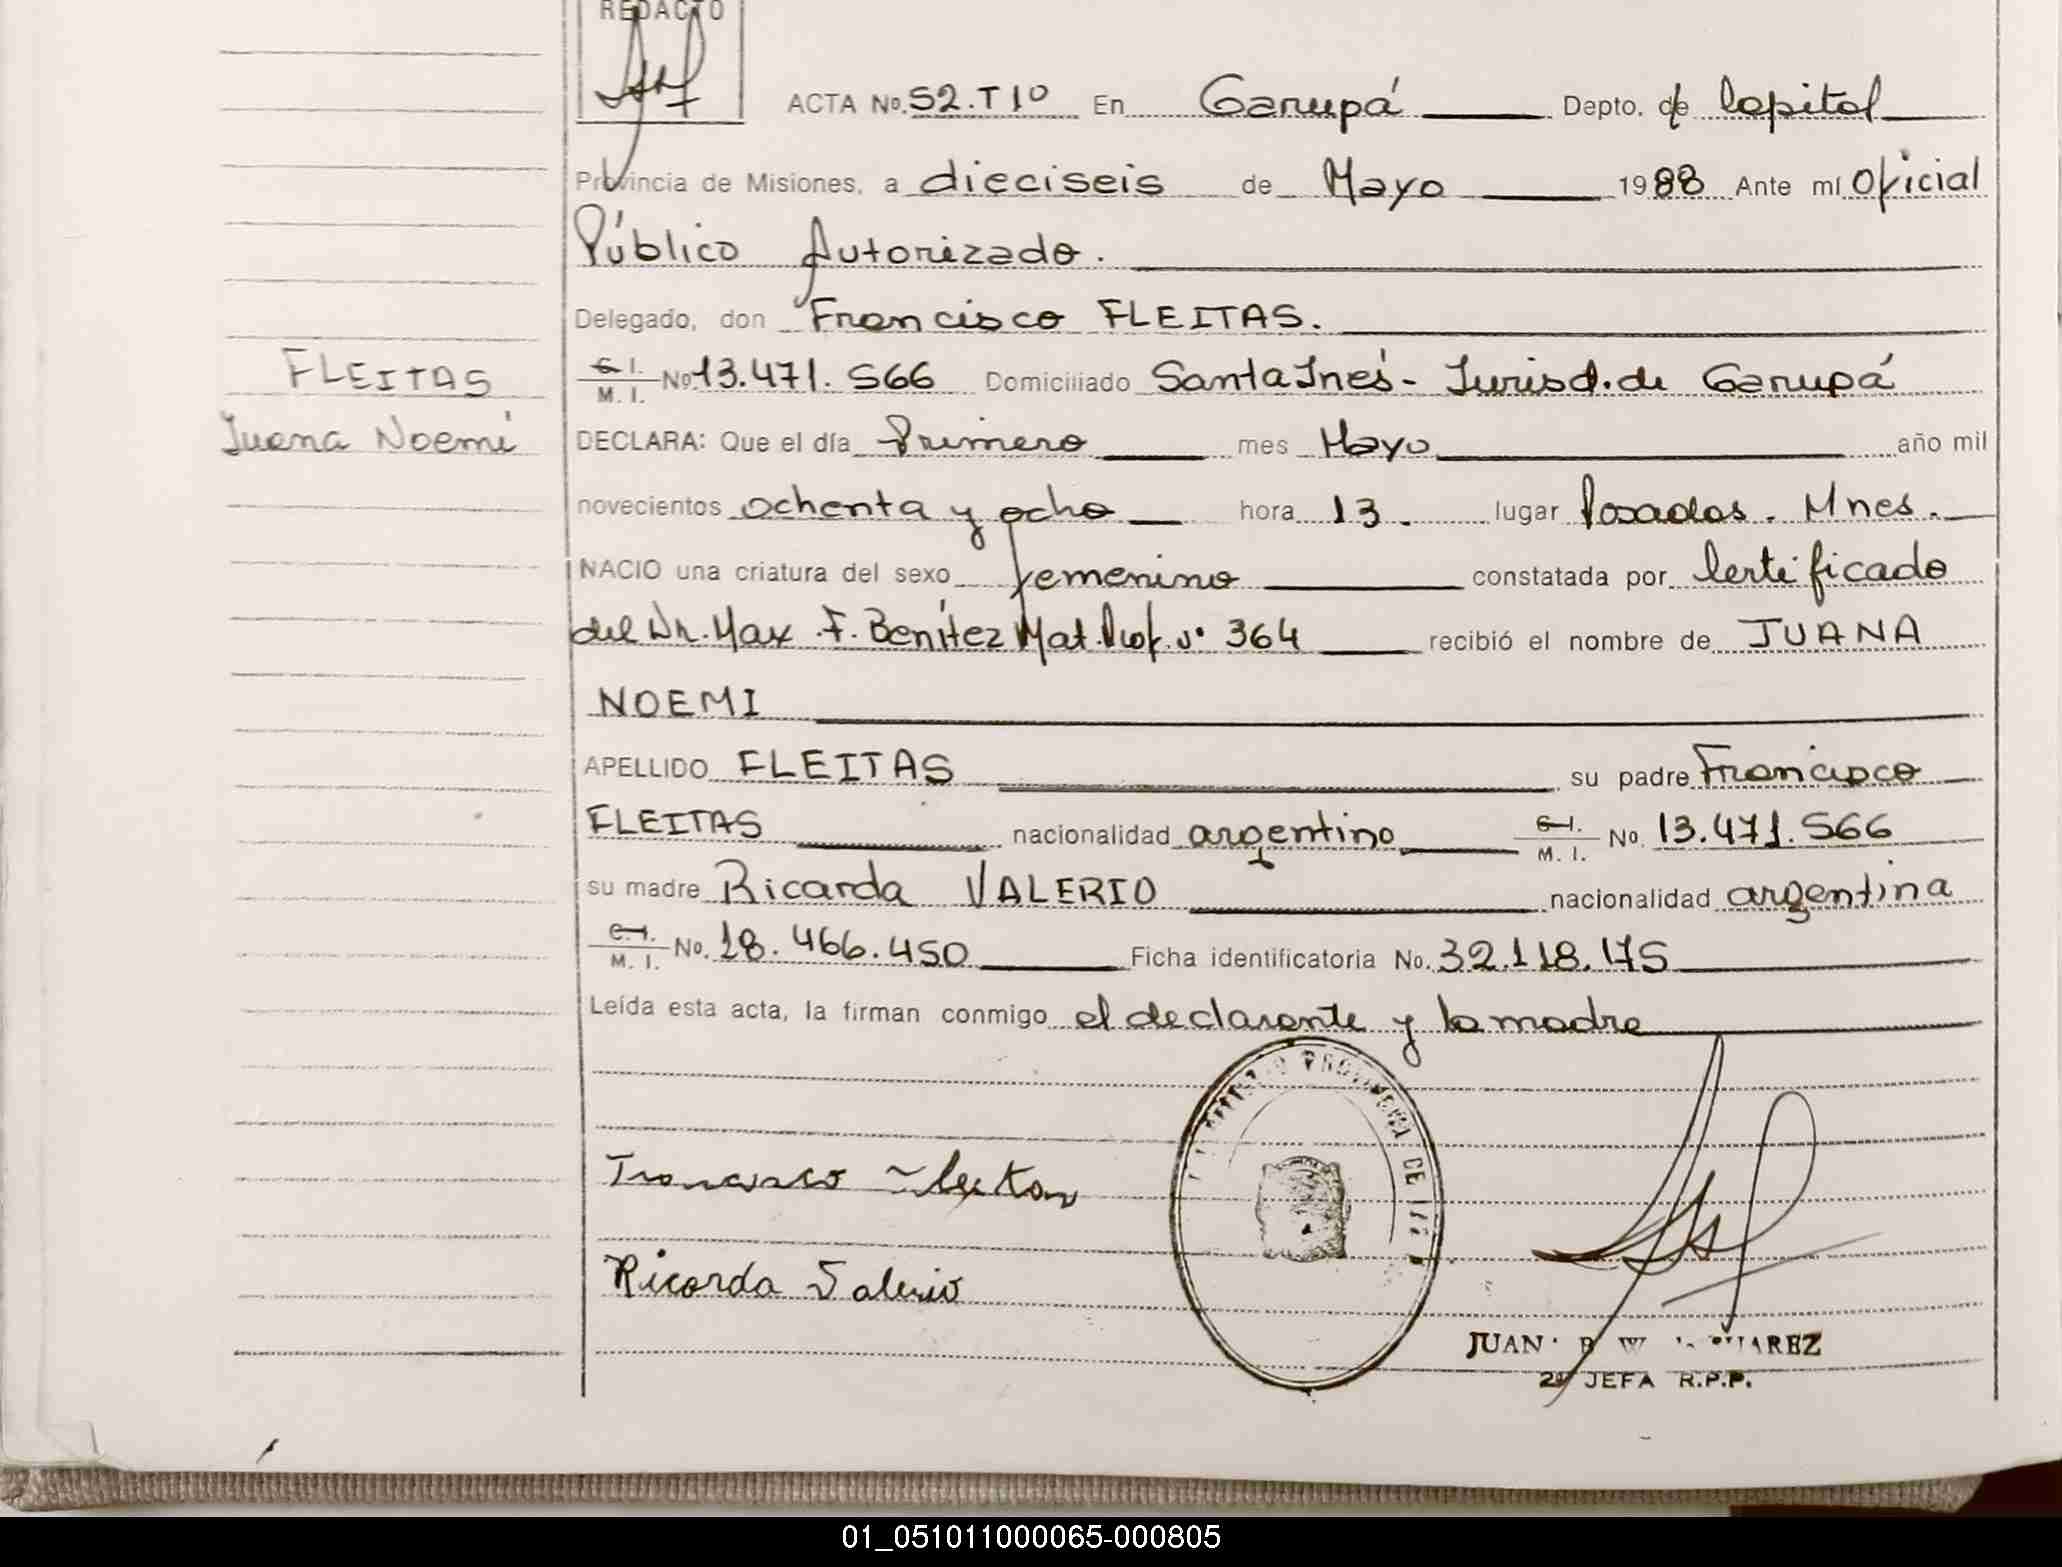 REDACTO
ACTA No. 52.T 1º En Garupá Depto. de Capital
Provincia de Misiones, a dieciseis de Mayo 1988 Ante mí Oficial
Público Autorizado.
Delegado, don Francisco FLEITAS.
C.I. M.I. No. 13.471.566 Domiciliado Santa Inés - Jurisd. de Garupá
FLEITAS
Juana Noemí
DECLARA: Que el día Primero mes Mayo año mil
novecientos ochenta y ocho hora 13. lugar Posadas. Mnes.
NACIO una criatura del sexo femenino constatada por Certificado
del Dr. Max. F. Benítez Mat. Prof. Nº 364 recibió el nombre de JUANA
NOEMI
APELLIDO FLEITAS su padre Francisco
FLEITAS nacionalidad argentino C.I. M.I. No. 13.471.566
su madre Ricarda VALERIO nacionalidad argentina
C.I. M.I. No. 18.466.450 Ficha identificatoria No. 32.118.175
Leída esta acta, la firman conmigo el declarante y la madre
Francisco Fleitas
Ricarda Valerio
JUAN SUAREZ
JEFA R.P.P.
01_051011000065-000805